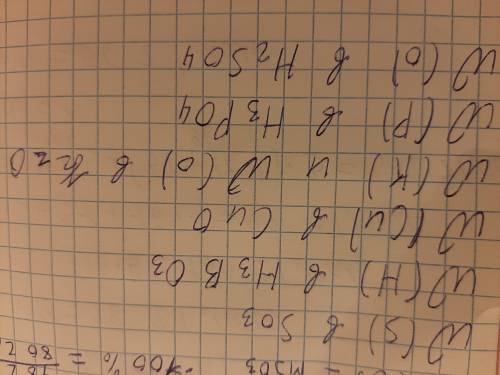 · 100% =
W (S) в SO3
W (H) в H3BO3
W (Cu) в CuO
W (K) и W (O) в K2O
W (P) в H3PO4
W (O) в H2SO4